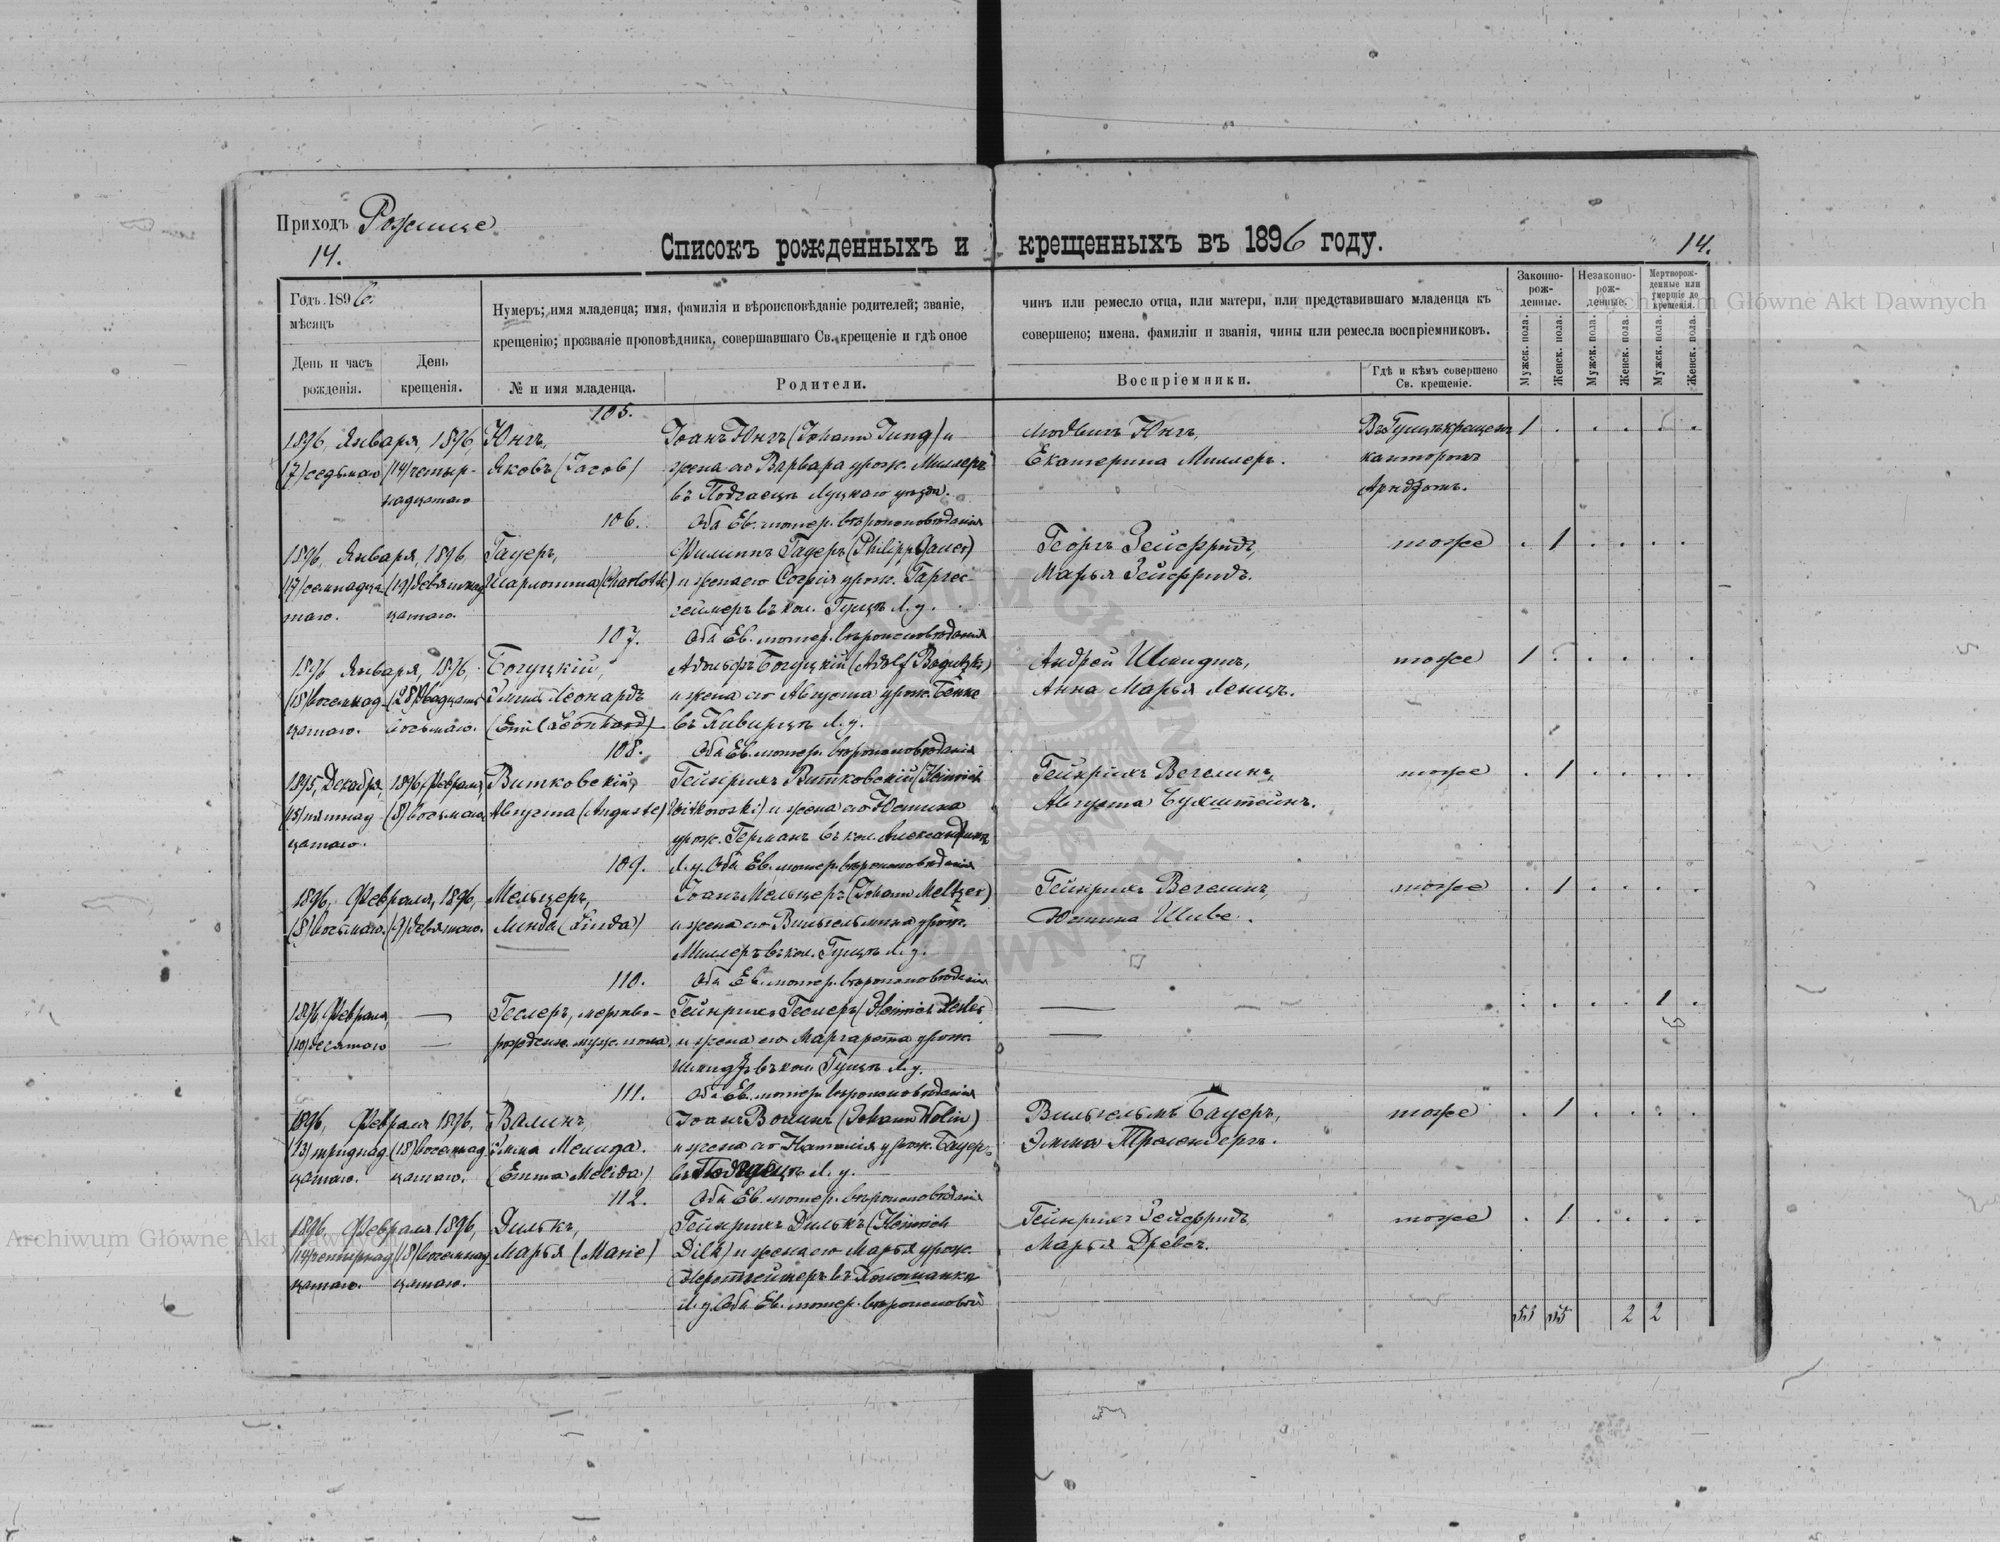 Приходъ Рожище
14.
14.
Списокъ рожденныхъ и крещенныхъ въ 1896 году.
Годъ 1896.
мѣсяцъ
День и часъ рожденія.
День крещенія.
Нумеръ; имя младенца; имя, фамилія и вѣроисповѣданіе родителей; званіе,
чинъ или ремесло отца, или матери, или представившаго младенца къ
крещенію; прозваніе проповѣдника, совершавшаго Св. крещеніе и гдѣ оное
совершено; имена, фамиліи и званія, чины или ремесла воспріемниковъ.
№ и имя младенца.
Родители.
Воспріемники.
Гдѣ и кѣмъ совершено
Св. крещеніе.
Законно-
рож-
денные.
Незаконно-
рож-
денные.
Мертворож-
денные или
умершіе до
крещенія.
Мужск. пола.
Женск. пола.
Мужск. пола.
Женск. пола.
Мужск. пола.
Женск. пола.
105.
1896, Января, 1896, Юнгъ, Іоанъ Юнгъ (Johann Jung) и Людвигъ Юнгъ, 1
(7) седьмаго (14) четыр- Яковъ (Jacob) жена его Варвара урож. Миллеръ Екатерина Миллеръ. канторомъ
надцатаго въ Подгаецъ Луцкаго уезда. Арндтомъ.
106. Оба Ев. лютер. вѣроисповѣданія
1896, Января, 1896, Гауеръ, Филиппъ Гауеръ (Philipp Gauer) Георгъ Зейфридъ, тоже 1
(17) семнадца (19) девятнад Шарлотта (Charlotte) и жена его Софія урож. Гарге Марья Зейфридъ.
таго. цатаго. геймеръ въ кол. Гущъ Л. у.
107. Оба Ев. лютер. вѣроисповѣданія
1896 Января, 1896, Богуцкій, Адольфъ Богуцкій (Adolf Bogutzki) Андрей Шмидтъ, тоже 1
(18) восемнад (28) двадцать Эмиль Леонардъ и жена его Августа урож. Бенке Анна Марья Ленцъ.
цатаго. восьмаго. (Emil Leonhard) въ Киверцъ Л. у.
108. Оба Ев. лютер. вѣроисповѣданія
1895, Декабря, 1896, Февраля, Витковскій, Гейнрихъ Витковскій (Heinrich Гейнрихъ Вегелинъ, тоже 1
(15) пятнад (8) восьмаго Августа (Auguste) Witkowski) и жена его Юстина Августа Бухштейнъ.
цатаго. урож. Германъ въ кол. Александ
109. Л. у. Оба Ев. лютер. вѣроисповѣданія
1896, Февраля, 1896, Мельцеръ, Іоанъ Мельцеръ (Johann Meltzer) Гейнрихъ Вегелинъ, тоже 1
(8) восьмаго. (9) девятаго. Линда (Linda) и жена его Вильгельмина урож. Юстина Шиве.
Миллеръ въ кол. Гущъ Л. у.
110. Оба Ев. лютер. вѣроисповѣданія
1896 Февраля, — Геслеръ, мертво- Гейнрихъ Геслеръ (Heinrich Hesler) — 1
(10) десятаго — рожден. муж. пола. и жена его Маргарета урож. —
Шмидтъ въ кол. Гущъ Л. у.
111. Оба Ев. лютер. вѣроисповѣданія
1896, Февраля 1896, Валинъ, Іоанъ Волинъ (Johann Wolin) Вильгельмъ Бауеръ, тоже 1
(13) тринад (18) восемнад Эмма Мелида. и жена его Наталія урож. Бауеръ Эмма
цатаго. цатаго. (Emma Melida) въ Подгаецъ Л. у.
112. Оба Ев. лютер. вѣроисповѣданія
1896, Февраля 1896, Дилькъ, Гейнрихъ Дилькъ (Heinrich Гейнрихъ Зейфридъ, тоже 1
(14) четырнад (18) восемнад Марья (Marie) Dilk) и жена его Марья урож. Марья Древсъ.
цатаго. цатаго.
Л. у. Оба Ев. лютер. вѣроисповѣд
2 2
Archiwum Główne Akt Dawnych
Archiwum Główne Akt Dawnych